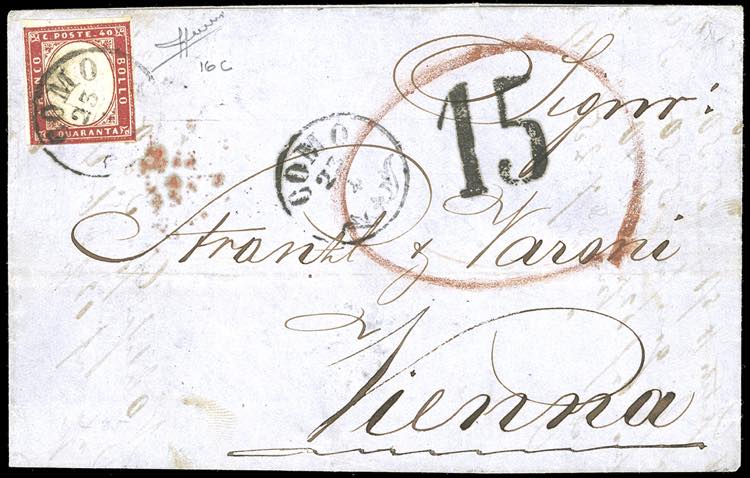 C. POSTE. 40
FRANCO BOLLO
QUARANTA
COMO
23
16C
Signori
15
COMO
23
Strantz & Varoni
Vienna